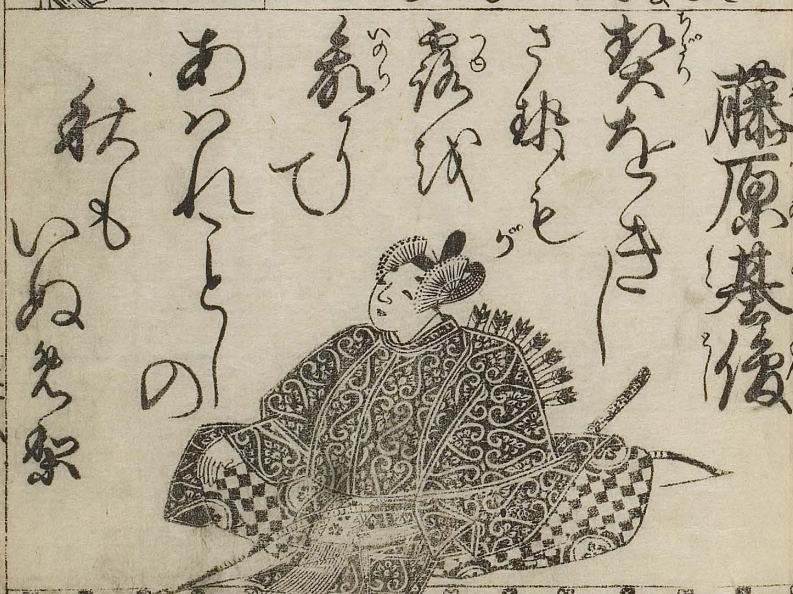 藤原基俊
契をきし
させもが
露を
命にて
あはれことしの
秋も
いぬめり